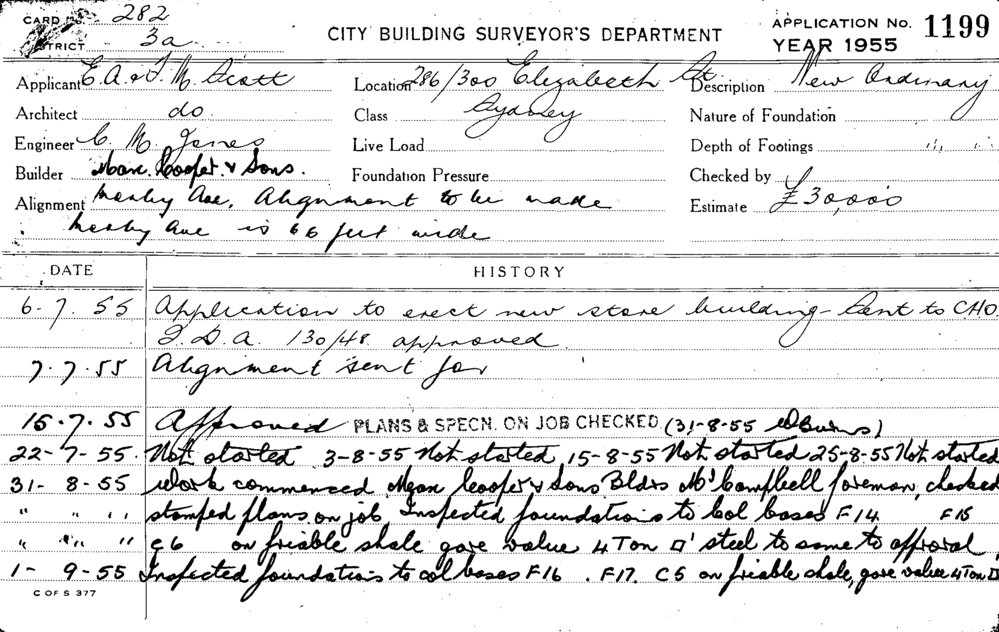 CARD No. 282
DISTRICT 3a
CITY BUILDING SURVEYOR'S DEPARTMENT
APPLICATION No. 1199
YEAR 1955
Applicant E. A. & T. M. Scott
Location 286/300 Elizabeth St
Description New Ordinary
Architect do
Class Sydney
Nature of Foundation
Engineer C. M. Jones
Live Load
Depth of Footings " "
Builder Max. Cooper & Sons.
Foundation Pressure
Checked by
Alignment Ave, Alignment to be made
Estimate £30,000
Ave is 66 feet wide
DATE HISTORY
6-7. 55 Application to erect new store building - Sent to CHO.
I. D. A. 130/48 approved.
7.7.55 Alignment sent for
15-7.55 Approved PLANS & SPECN. ON JOB CHECKED (31-8-55 WBurns)
22-7-55. Not started 3-8-55 Not started, 15-8-55 Not started 25-8-55 Not started
31-8-55 Work commenced Max Cooper & Sons Bldrs Mr Campbell foreman, checked
" " " stamped plans on job Inspected foundations to Col bases F14 F15
" " " C6 on friable shale gave value 4 Ton □' steel to same to approval
1-9-55 Inspected foundations to col bases F16. F17. C5 on friable shale, gave value 4 Ton □
C OF S 377